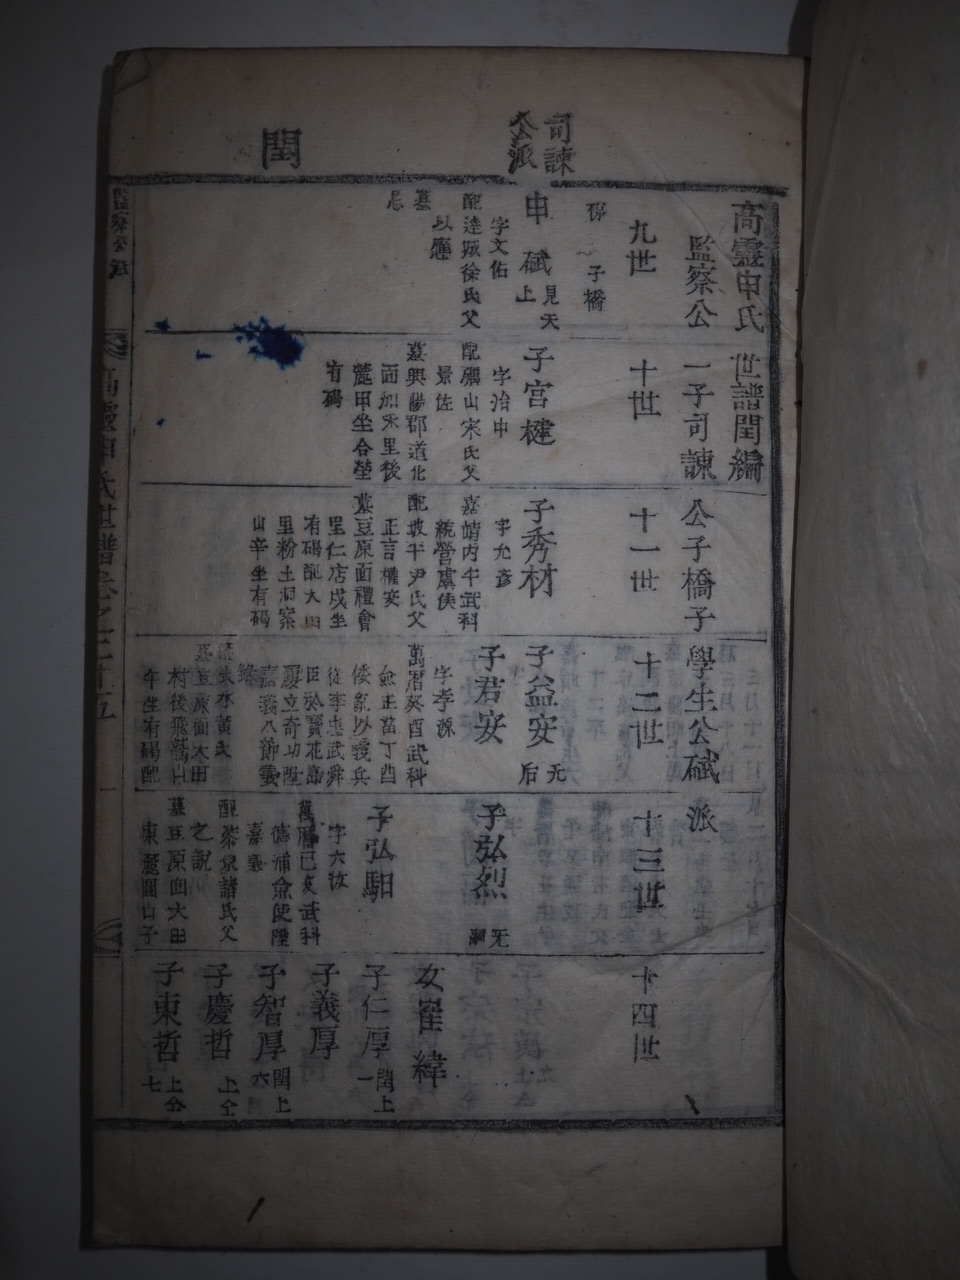 司諫
公派
閏
高靈申氏世譜閏編
監察公一子司諫公子橋子學生公碔派
九世
子橋
申碔
見天
上
字文佑
配達城徐氏父
以應
墓
十世
子宮楗
字治中
配礪山宋氏父
景佐
墓興陽郡道化
面加禾里後
麓甲坐合塋
有碣
十一世
子秀材
字允彦
嘉靖丙午武科
統營虞侯
配坡平尹氏父
正言權安
墓豆原面禮會
里仁店戌坐
有碣配大田
里粉土洞案
山辛坐有碣
十二世
子益安
无
后
子君安
字孝源
萬曆癸酉武科
僉正當丁酉
倭亂以義兵
從李忠武舜
臣於寶花島
屢立奇功陞
嘉義八節義
錄
配長水黃氏
墓豆原面大田
村後飛鵞山
午坐有碣配
十三世
子弘烈
无
嗣
子弘馹
字六汝
萬曆己亥武科
德浦僉使陞
嘉義
配泰泉諸氏父
之說
墓豆原面大田
東麓圓山子
十四世
女崔緯
子仁厚
閏上
一
子義厚
子智厚
閏上
六
子慶哲
上仝
子東哲
上仝
七
監察公派
高靈申氏世譜卷之三十五
一